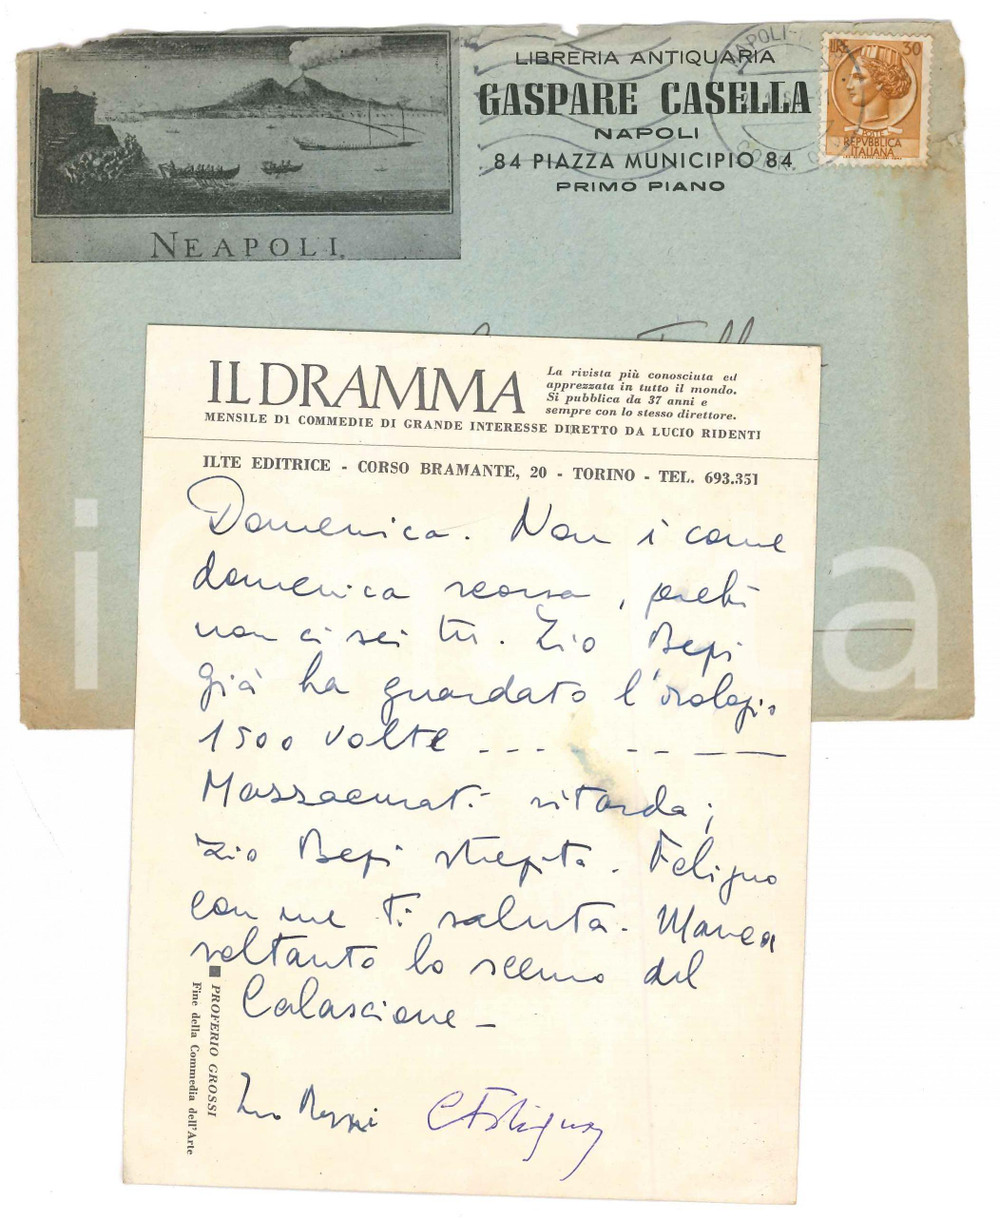 LIBRERIA ANTIQUARIA
GASPARE CASELLA
NAPOLI
84 PIAZZA MUNICIPIO 84
PRIMO PIANO
NEAPOLI.
LIRE 30
POSTE
REPVBBLICA
ITALIANA
IL DRAMMA
La rivista più conosciuta ed
apprezzata in tutto il mondo.
Si pubblica da 37 anni e
sempre con lo stesso direttore.
MENSILE DI COMMEDIE DI GRANDE INTERESSE DIRETTO DA LUCIO RIDENTI
ILTE EDITRICE - CORSO BRAMANTE, 20 - TORINO - TEL. 693.351
Domenica. Non è come
domenica scorsa, perché
non ci sei tu. Zio Bepi
già ha guardato l'orologio
1500 volte --- -- ——
Massacurati ritarda;
zio Bepi strepita. Feligno
con me ti saluta. Manca
soltanto lo scemo del
Calascione -
Zio Beppi
PROFERIO GROSSI
Fine della Commedia dell'Arte